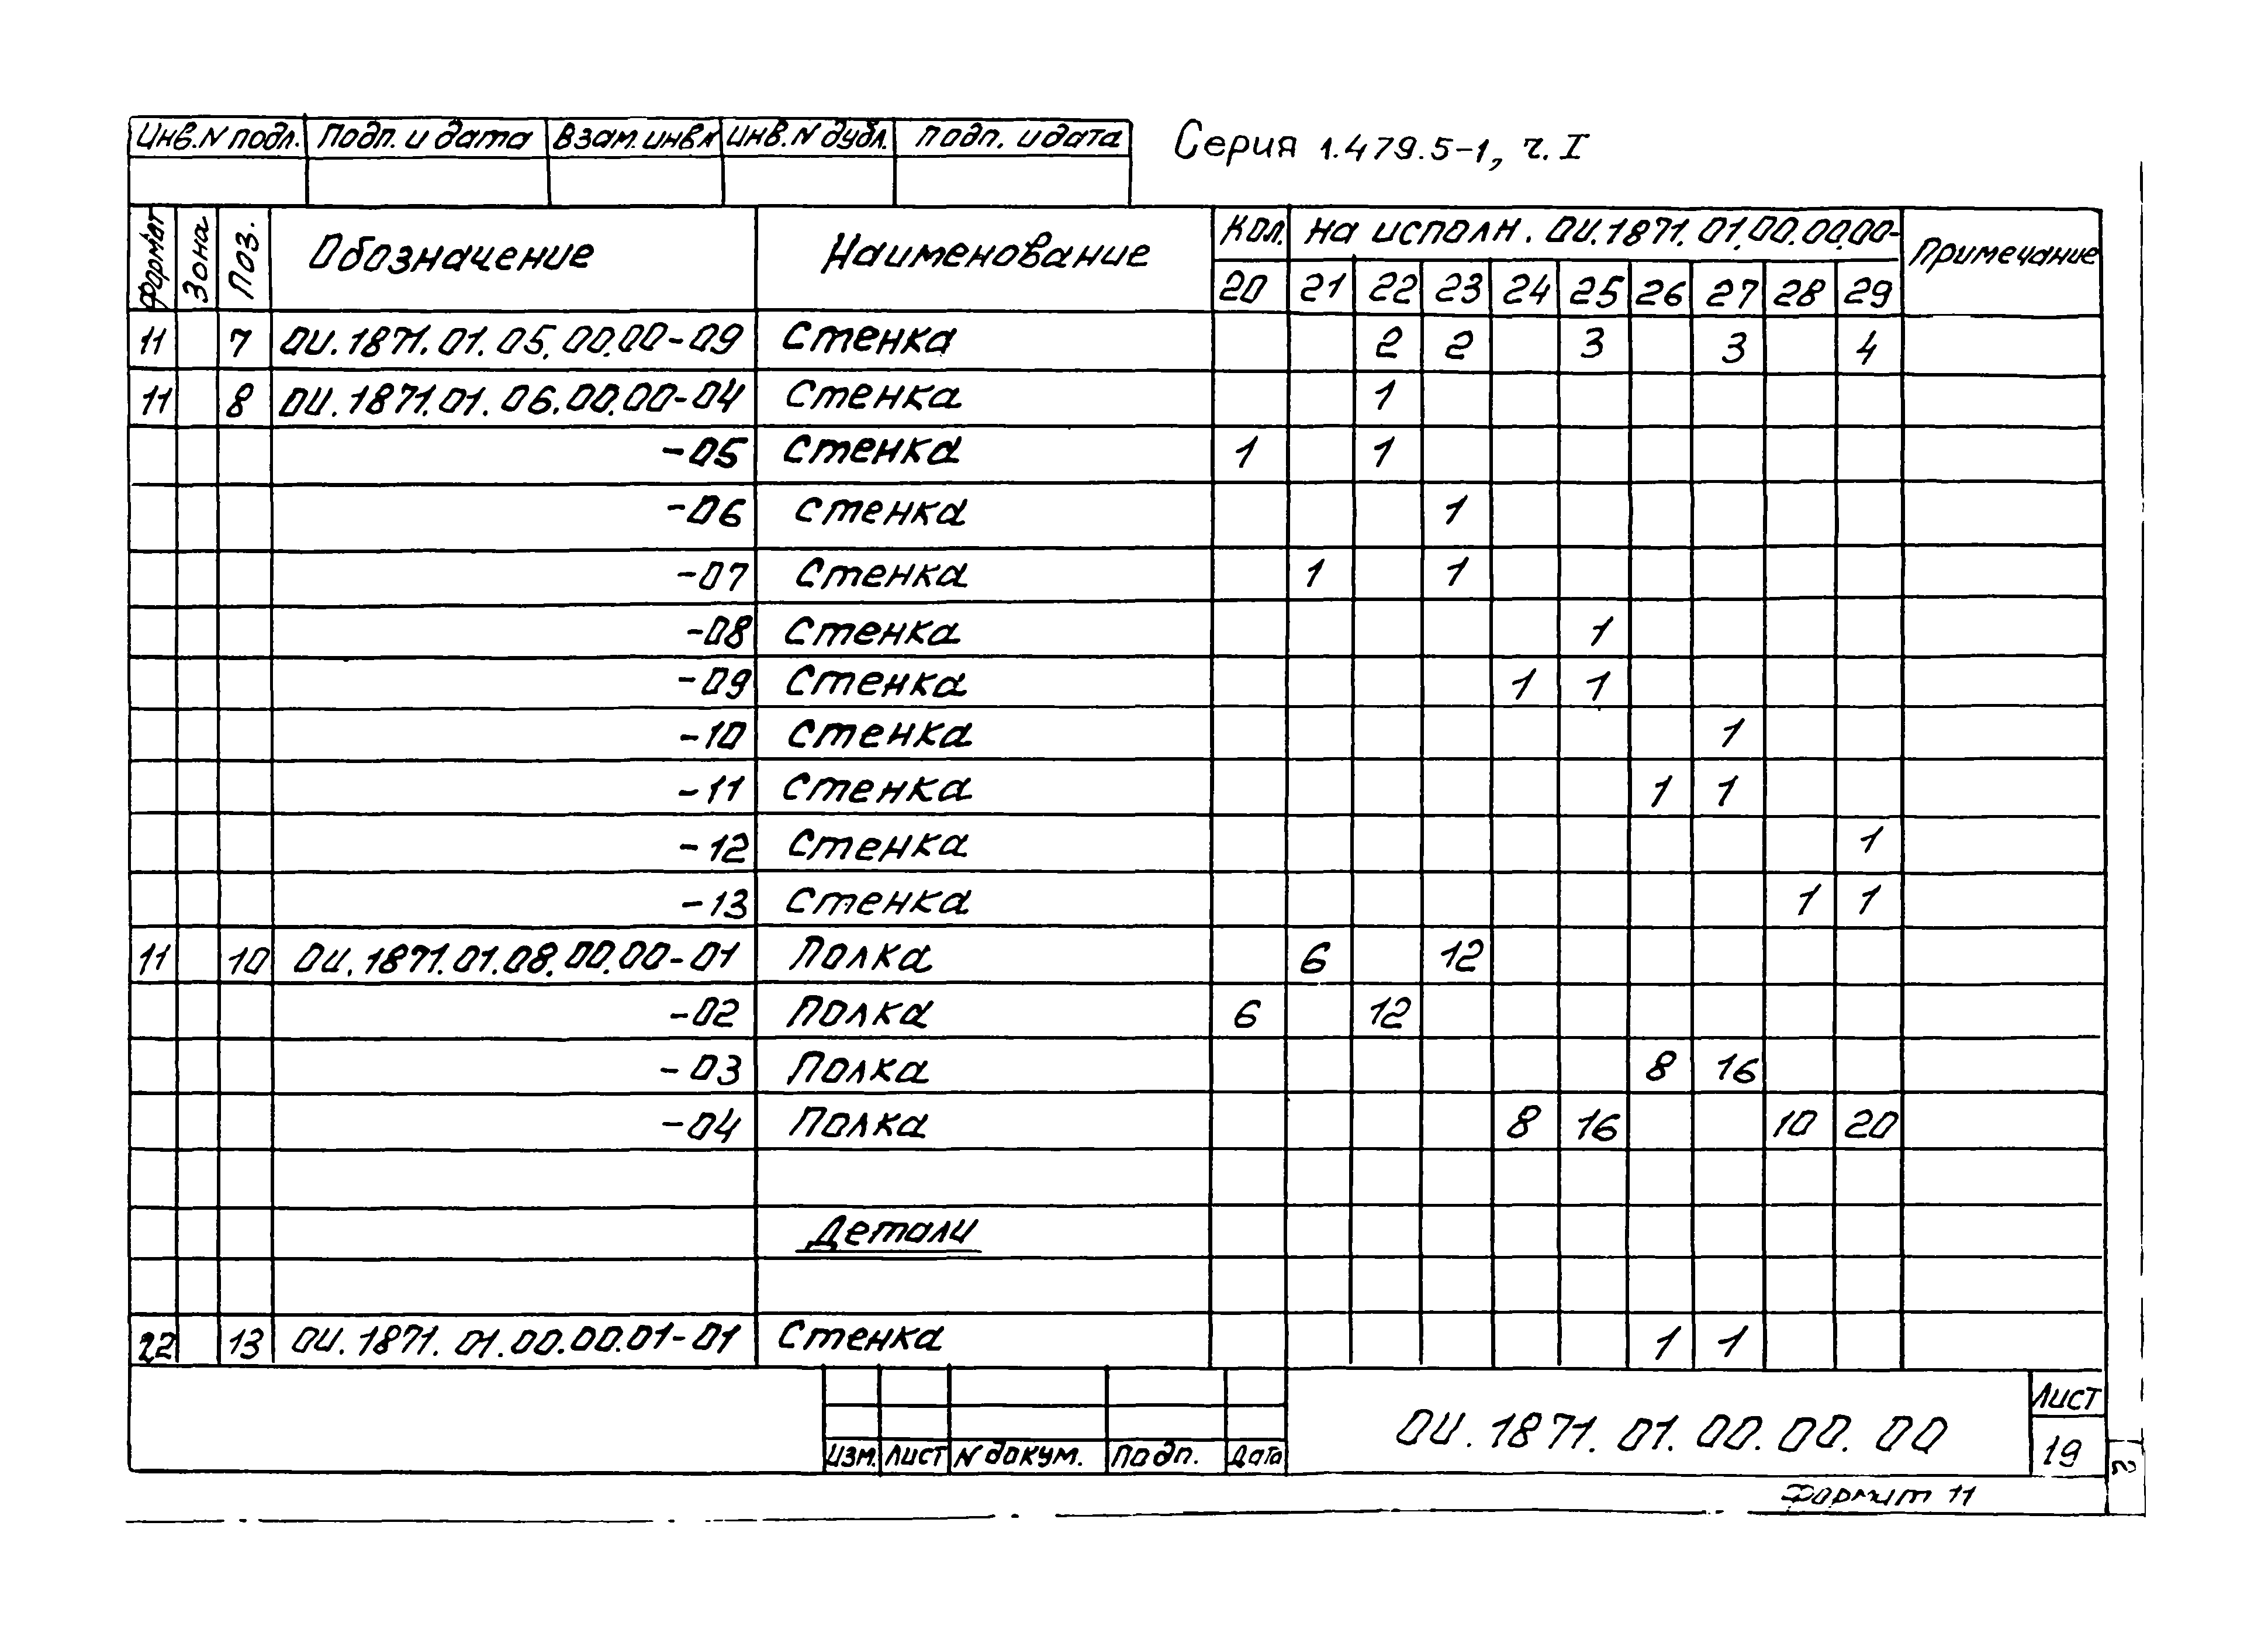 Инв.N подл. Подп. и дата Взам. инв.N Инв.N дубл. Подп. и дата
Серия 1.479.5-1, ч. I
Формат Зона Поз. Обозначение Наименование Кол. на исполн. ОИ.1871.01.00.00.00- Примечание
20 21 22 23 24 25 26 27 28 29
11 7 ОИ.1871.01.05.00.00-09 Стенка 2 2 3 3 4
11 8 ОИ.1871.01.06.00.00-04 Стенка 1
-05 Стенка 1 1
-06 Стенка 1
-07 Стенка 1 1
-08 Стенка 1
-09 Стенка 1 1
-10 Стенка 1
-11 Стенка 1 1
-12 Стенка 1
-13 Стенка 1 1
11 10 ОИ.1871.01.08.00.00-01 Полка 6 12
-02 Полка 6 12
-03 Полка 8 16
-04 Полка 8 16 10 20
Детали
22 13 ОИ.1871.01.00.00.01-01 Стенка 1 1
Изм. Лист N докум. Подп. Дата
ОИ.1871.01.00.00.00
Лист
19
Формат 11